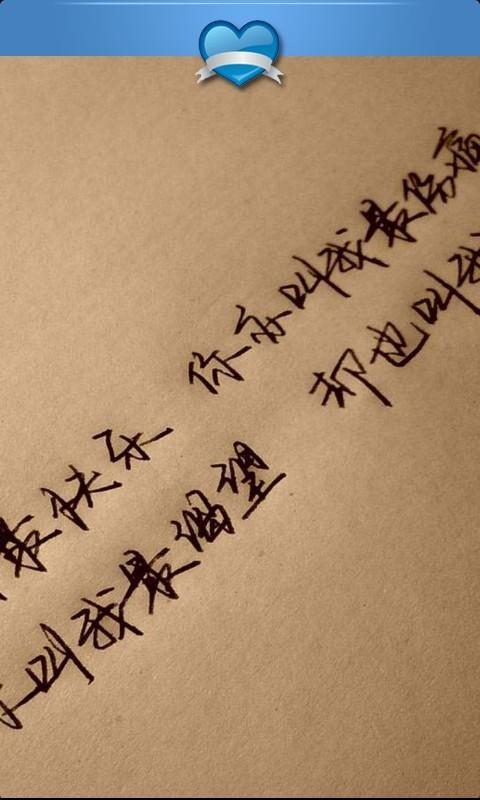 最快乐 你亦叫我最伤痛
叫我最渴望 却也叫我